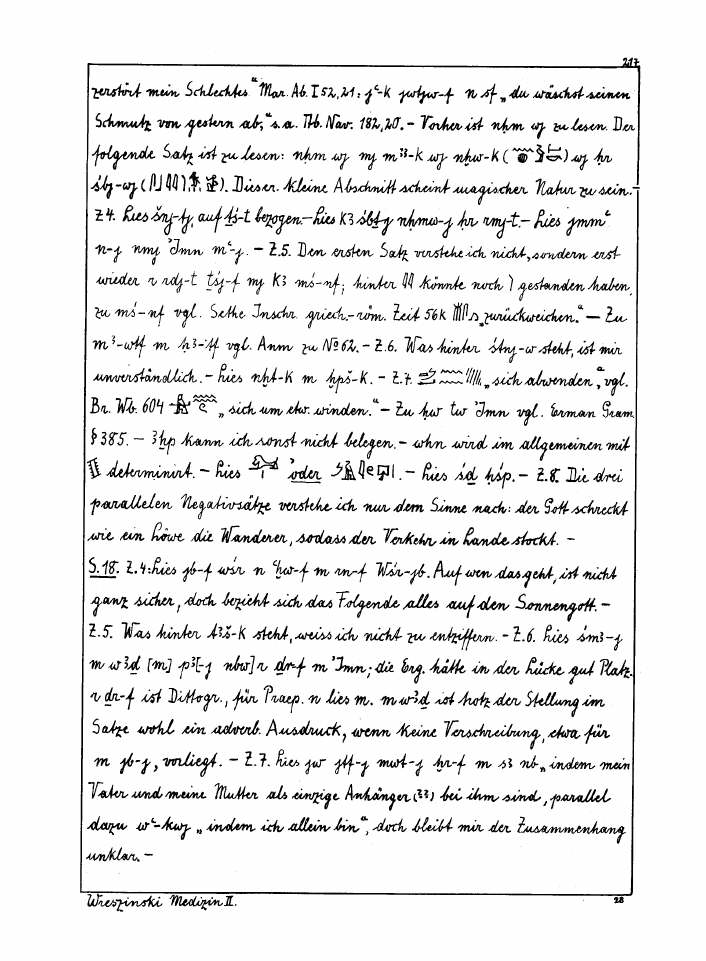 217
zerstört mein Schlechtes" Mar. Ab. I 52, 21: jʿ-k jwtjw-f n sf „du wäschst seinen
Schmutz von gestern ab," s.a. Tb. Nav. 182, 20. – Vorher ist nḥm wj zu lesen. Der
folgende Satz ist zu lesen: nḥm wj mj m³³-k wj nḥw-k ( ) wj ḥr
śbj-wj ( ). Dieser kleine Abschnitt scheint magischer Natur zu sein. –
Z 4. Lies šnj-tj, auf tś-t bezogen. – Lies K3 śbṯ-j nḥmw-j ḥr rmj-t. – Lies jmmʿ
n-j nmj 'Jmn mʿ-j. – Z. 5. Den ersten Satz verstehe ich nicht, sondern erst
wieder r rdj-t ṯśj-f mj K3 mś-nf; hinter könnte noch gestanden haben,
zu mś-nf vgl. Sethe Inschr. griech.-röm. Zeit 56 k „zurückweichen." – Zu
m ³-wtf m ḥ³-tf vgl. Anm zu № 62. – Z. 6. Was hinter śtnj-w steht, ist mir
unverständlich. – Lies nḫt-k m ḫpš-k. – Z. 7. „sich abwenden," vgl.
Br. Wb. 604 „sich um etw. winden." – Zu ḥw tw 'Jmn vgl. Erman Gram.
§ 385. – ³hp kann ich sonst nicht belegen. – whn wird im allgemeinen mit
determinirt. – Lies oder . – Lies śḏ ḥśp. – Z. 8. Die drei
parallelen Negativsätze verstehe ich nur dem Sinne nach: der Gott schreckt
wie ein Löwe die Wanderer, sodass der Verkehr in Lande stockt. –
S. 18. Z. 4: Lies jb-f wśr n ʿḥw-f m rn-f Wśr-jb. Auf wen das geht, ist nicht
ganz sicher, doch bezieht sich das Folgende alles auf den Sonnengott. –
Z. 5. Was hinter t³š-k steht, weiss ich nicht zu entziffern. – Z. 6. Lies śm³-j
m w³ḏ [m] p³[-j nbw] r ḏr-f m 'Jmn; die Erg. hätte in der Lücke gut Platz.
r ḏr-f ist Dittogr., für Praep. n lies m. m w³ḏ ist trotz der Stellung im
Satze wohl ein adverb. Ausdruck, wenn keine Verschreibung, etwa für
m jb-j, vorliegt. – Z. 7. Lies jw jtf-j mwt-j ḥr-f m s³ nb „indem mein
Vater und meine Mutter als einzige Anhänger (??) bei ihm sind, parallel
dazu wʿ-kwj „indem ich allein bin", doch bleibt mir der Zusammenhang
unklar. –
Wreszinski Medizin II.
28